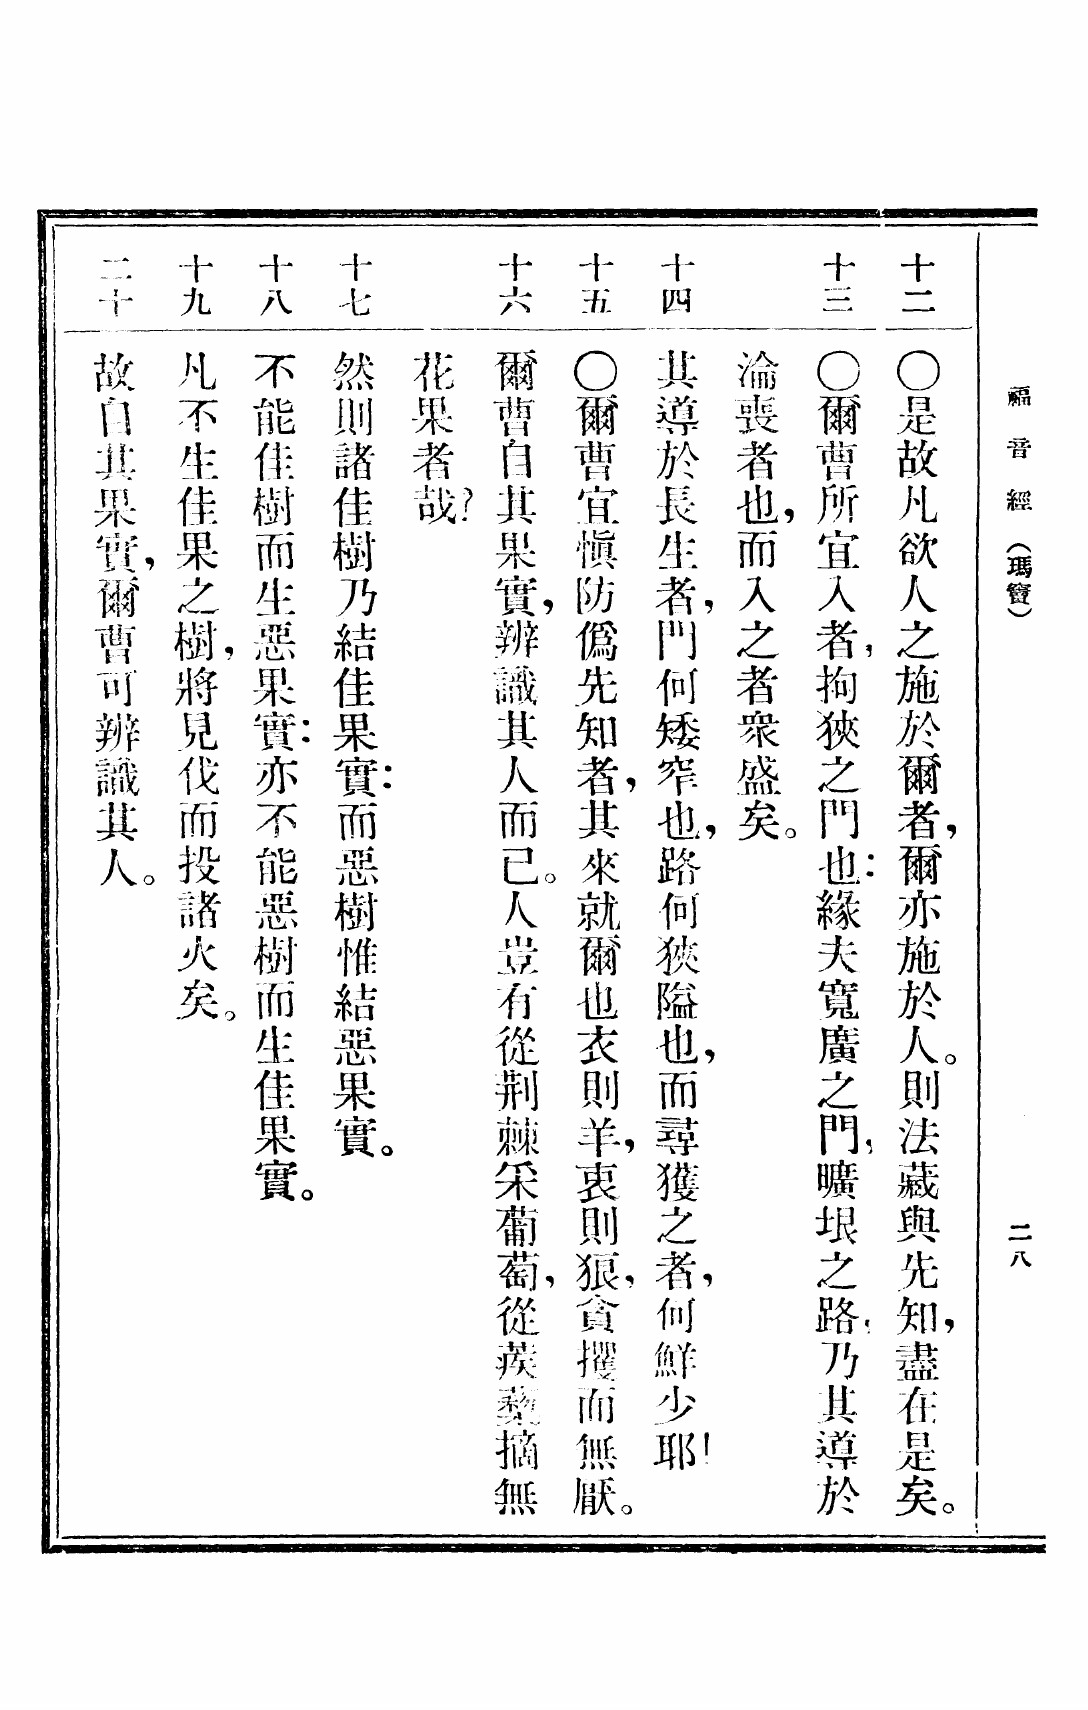 福音經（瑪竇）
二八
十二
〇是故凡欲人之施於爾者，爾亦施於人。則法藏與先知，盡在是矣。
十三
〇爾曹所宜入者，拘狹之門也：緣夫寬廣之門，曠垠之路，乃其導於
淪喪者也，而入之者衆盛矣。
十四
其導於長生者，門何矮窄也，路何狹隘也，而尋獲之者，何鮮少耶！
十五
〇爾曹宜愼防僞先知者，其來就爾也衣則羊，衷則狼，貪攫而無厭。
十六
爾曹自其果實，辨識其人而已。人豈有從荆棘采葡萄，從蒺藜摘無
花果者哉？
十七
然則諸佳樹乃結佳果實：而惡樹惟結惡果實。
十八
不能佳樹而生惡果實：亦不能惡樹而生佳果實。
十九
凡不生佳果之樹，將見伐而投諸火矣。
二十
故自其果實，爾曹可辨識其人。